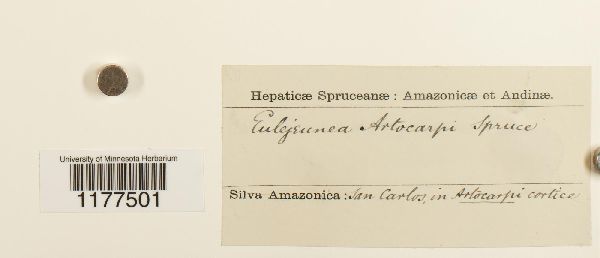 Hepaticæ Spruceanæ: Amazonicæ et Andinæ.
Eulejeunea Artocarpi Spruce
University of Minnesota Herbarium
1177501
Silva Amazonica: San Carlos, in Artocarpi cortice